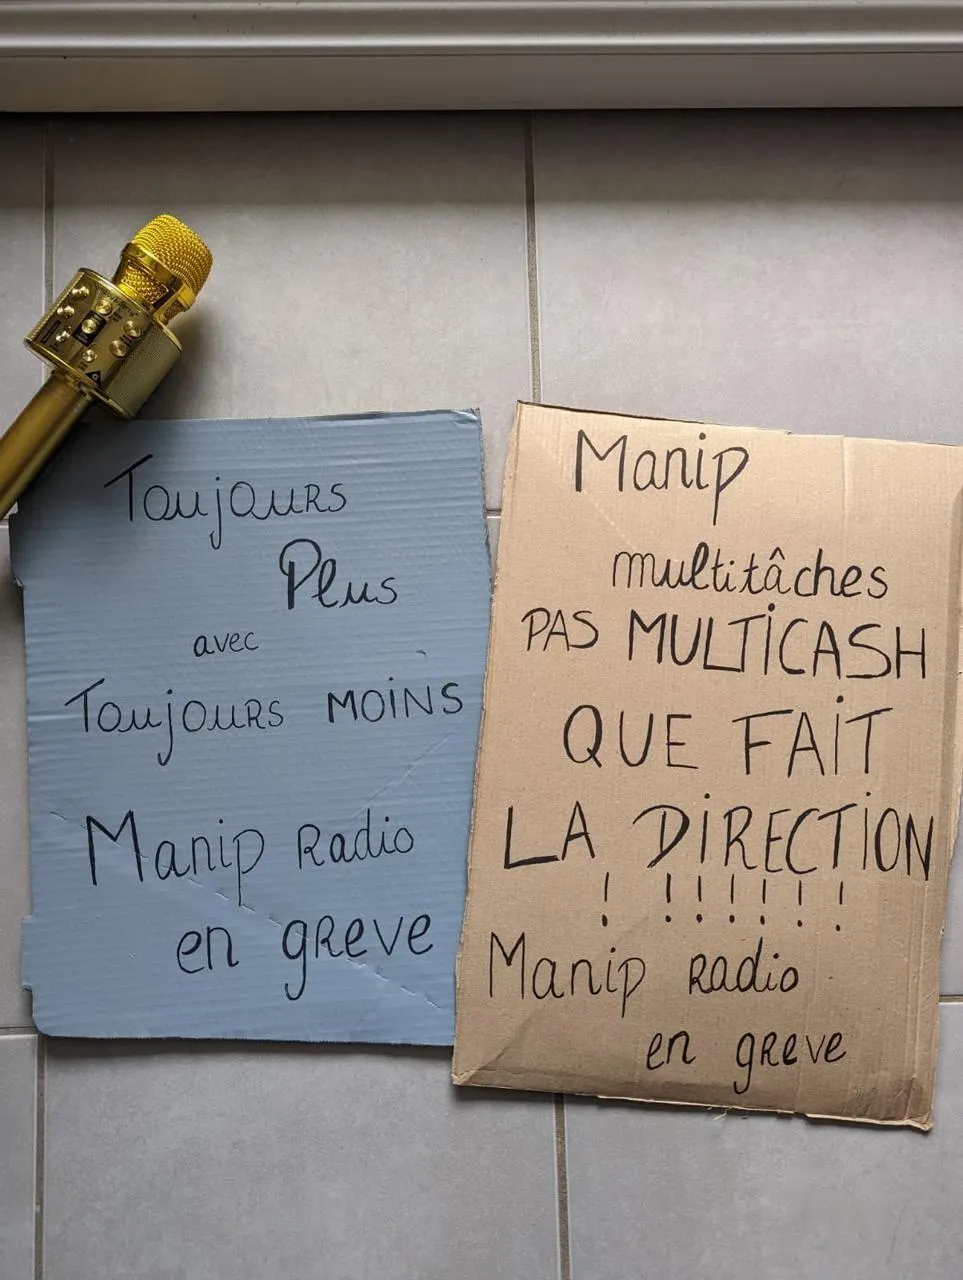 Toujours
Plus
avec
Toujours MOINS
Manip Radio
en greve
Manip
multitâches
PAS MULTICASH
QUE FAIT
LA DIRECTION
! ! ! ! ! ! !
Manip Radio
en greve